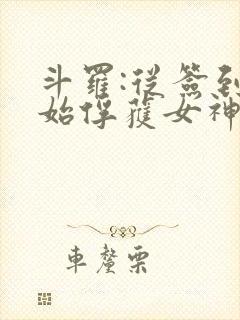 斗羅:從簽到
始俘獲女神
車釐栗